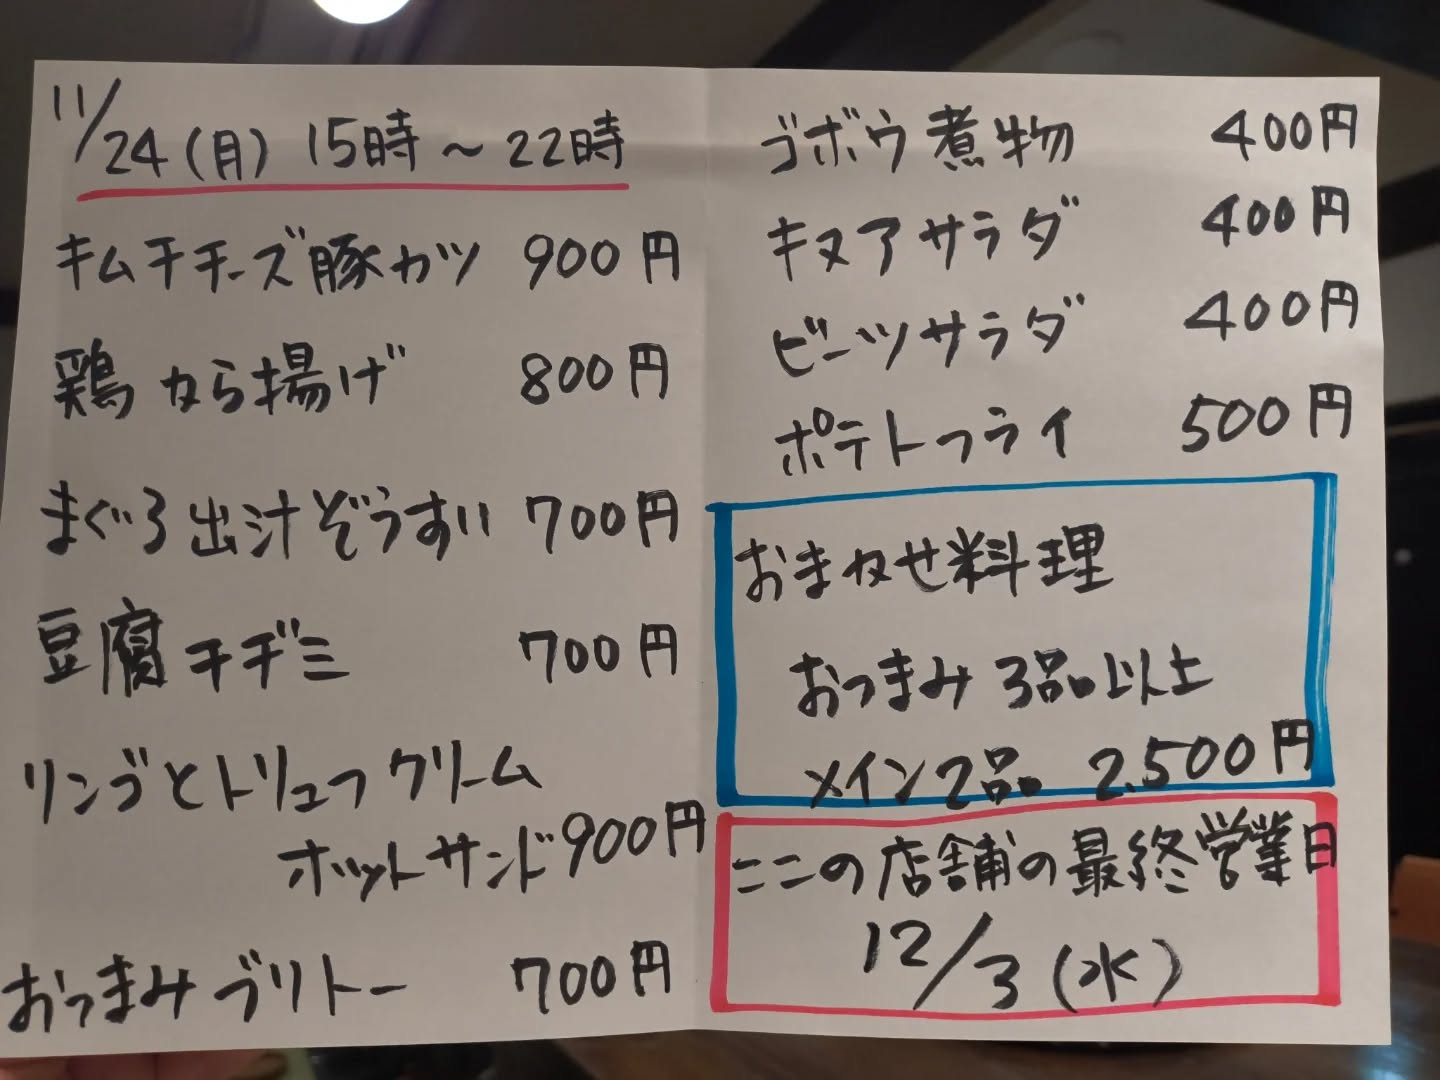 11/24(月) 15時～22時
キムチチーズ豚カツ 900円
鶏から揚げ 800円
まぐろ出汁ぞうすい 700円
豆腐チヂミ 700円
リンゴとトリュフクリーム
ホットサンド 900円
おつまみブリトー 700円
ゴボウ煮物 400円
キヌアサラダ 400円
ビーツサラダ 400円
ポテトフライ 500円
おまかせ料理
おつまみ3品以上
メイン2品 2.500円
ここの店舗の最終営業日
12/3(水)